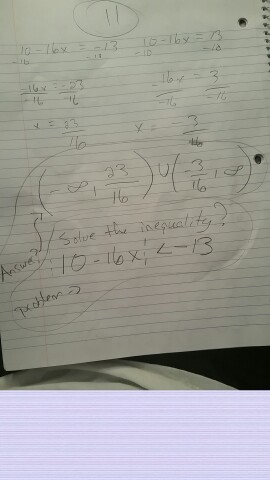 11
10-16x = -13 10-16x = 13
-10 -10 -10 -10
-16x = -23 -16x = 3
-16 -16 -16 -16
x = 23/16 x = -3/16
(-∞, 23/16) ∪ (-3/16, ∞)
Answer
Solve the inequality?
|10-16x| < -13
problem →